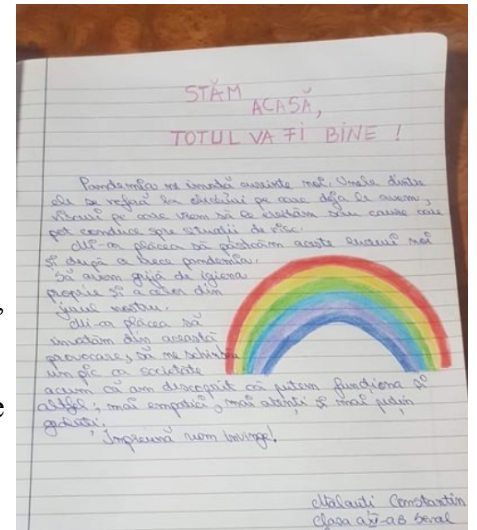 STĂM
ACASĂ,
TOTUL VA FI BINE !
Pandemia ne învață cuvinte noi. Unele dintre
ele se referă la obiceiuri pe care deja le avem,
viruși pe care vrem să îi evităm sau cauze care
pot conduce spre situații de risc.
Mi-ar plăcea să păstrăm aceste lucruri noi
și după ce trece pandemia.
Să avem grijă de igiena
proprie și a celor din
jurul nostru.
Mi-ar plăcea să
învățăm din această
provocare, să ne schimbăm
un pic ca societate
acum că am descoperit că putem funcționa și
altfel; mai empatici, mai atenți și mai puțin
grăbiți.
Împreună vom învinge!
Constantin
clasa a XI-a B seral